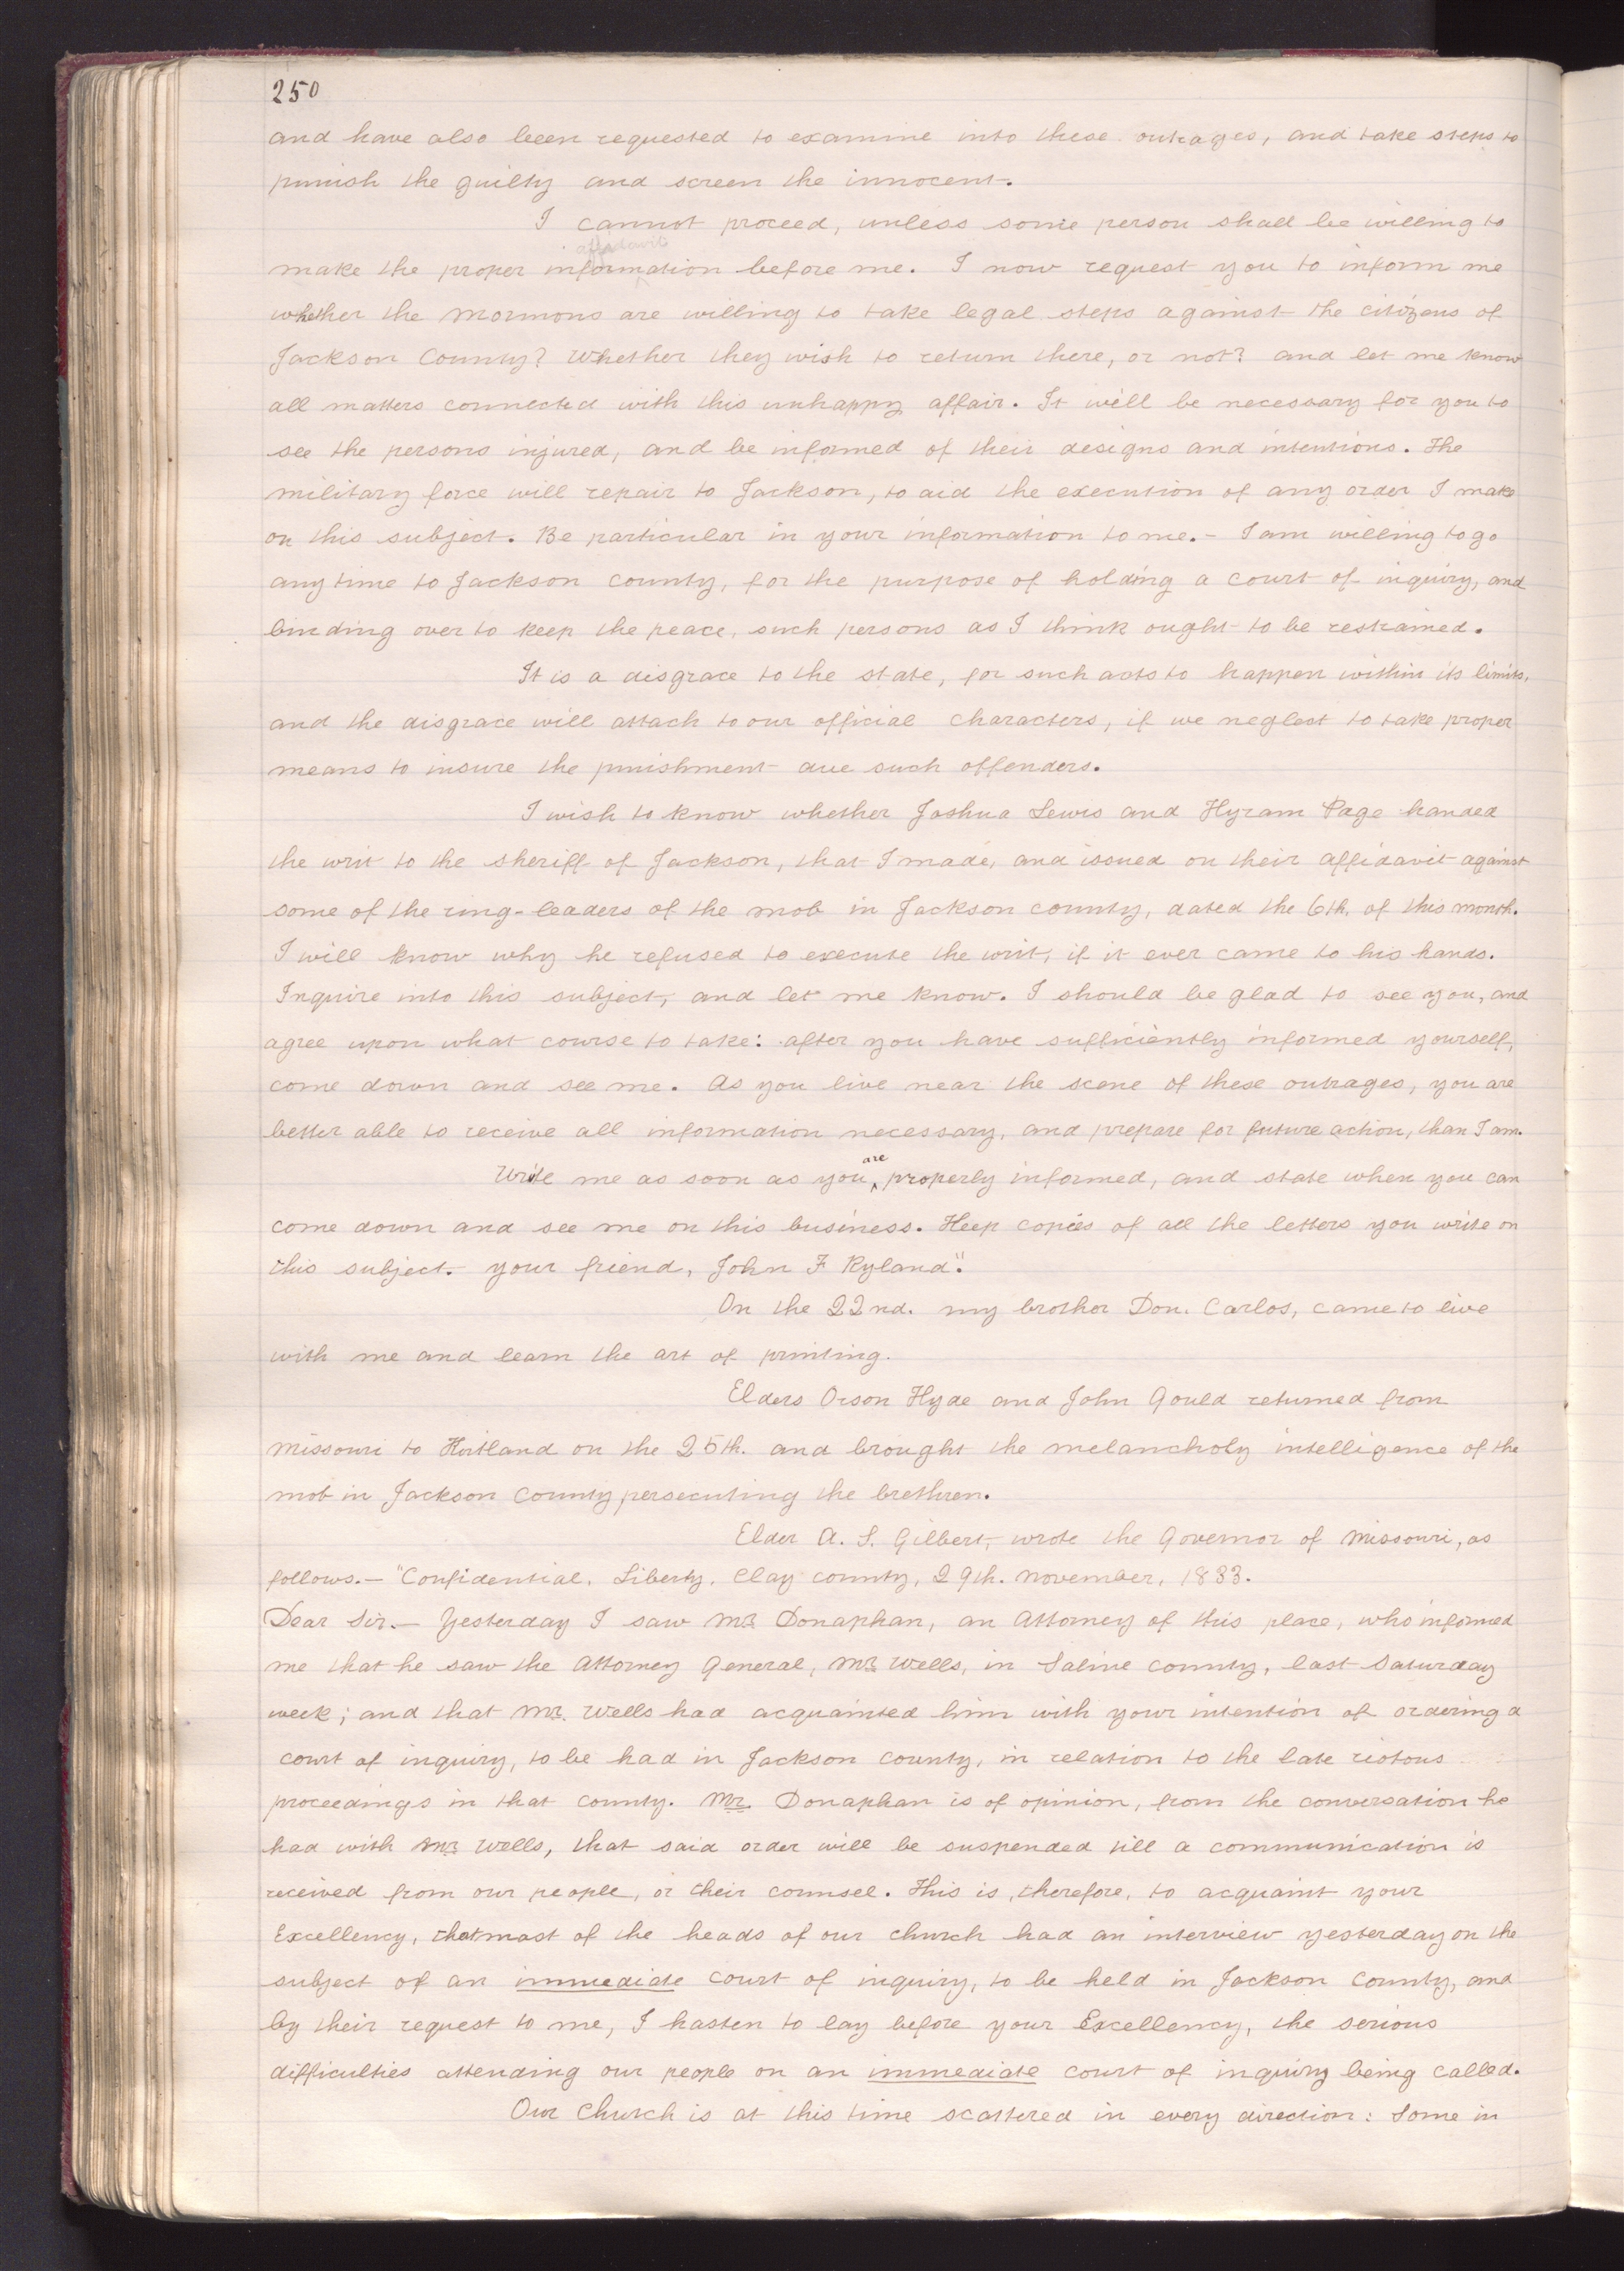 250
and have also been requested to examine into these outrages, and take steps to
punish the guilty and screen the innocent.
I cannot proceed, unless some person shall be willing to
affidavit
make the proper information before me. I now request you to inform me
whether the Mormons are willing to take legal steps against the citizens of
Jackson County? Whether they wish to return there, or not? and let me know
all matters connected with this unhappy affair. It will be necessary for you to
see the persons injured, and be informed of their designs and intentions. The
military force will repair to Jackson, to aid the execution of any order I make
on this subject. Be particular in your information to me.- I am willing to go
any time to Jackson county, for the purpose of holding a court of inquiry, and
binding over to keep the peace, such persons as I think ought to be restrained.
It is a disgrace to the state, for such acts to happen within its limits,
and the disgrace will attach to our official characters, if we neglect to take proper
means to insure the punishment due such offenders.
I wish to know whether Joshua Lewis and Hyram Page handed
the writ to the sheriff of Jackson, that I made, and issued on their affidavit against
some of the ring-leaders of the mob in Jackson county, dated the 6th. of this month.
I will know why he refused to execute the writ, if it ever came to his hands.
Inquire into this subject, and let me know. I should be glad to see you, and
agree upon what course to take: after you have sufficiently informed yourself,
come down and see me. As you live near the scene of these outrages, you are
better able to receive all information necessary, and prepare for future action, than I am.
Write me as soon as you ^are properly informed, and state when you can
come down and see me on this business. Keep copies of all the letters you write on
this subject. your friend, John F Ryland."
On the 22nd. my brother Don. Carlos, came to live
with me and learn the art of printing.
Elders Orson Hyde and John Gould returned from
Missouri to Kirtland on the 25th. and brought the melancholy intelligence of the
mob in Jackson County persecuting the brethren.
Elder A. S. Gilbert, wrote the Governor of Missouri, as
follows.— "Confidential, Liberty, Clay county, 29th. November, 1833.
Dear Sir.— Yesterday I saw Mr. Donaphan, an Attorney of this place, who informed
me that he saw the Attorney General, Mr. Wells, in Saline county, last Saturday
week; and that Mr. Wells had acquainted him with your intention of ordering a
court of inquiry, to be had in Jackson county, in relation to the late riotous
proceedings in that county. Mr. Donaphan is of opinion, from the conversation he
had with Mr. Wells, that said order will be suspended till a communication is
received from our people, or their counsel. This is, therefore, to acquaint your
Excellency, that most of the heads of our church had an interview yesterday on the
subject of an immediate court of inquiry, to be held in Jackson County, and
by their request to me, I hasten to lay before your Excellency, the serious
difficulties attending our people on an immediate court of inquiry being called.
Our Church is at this time scattered in every direction: Some in